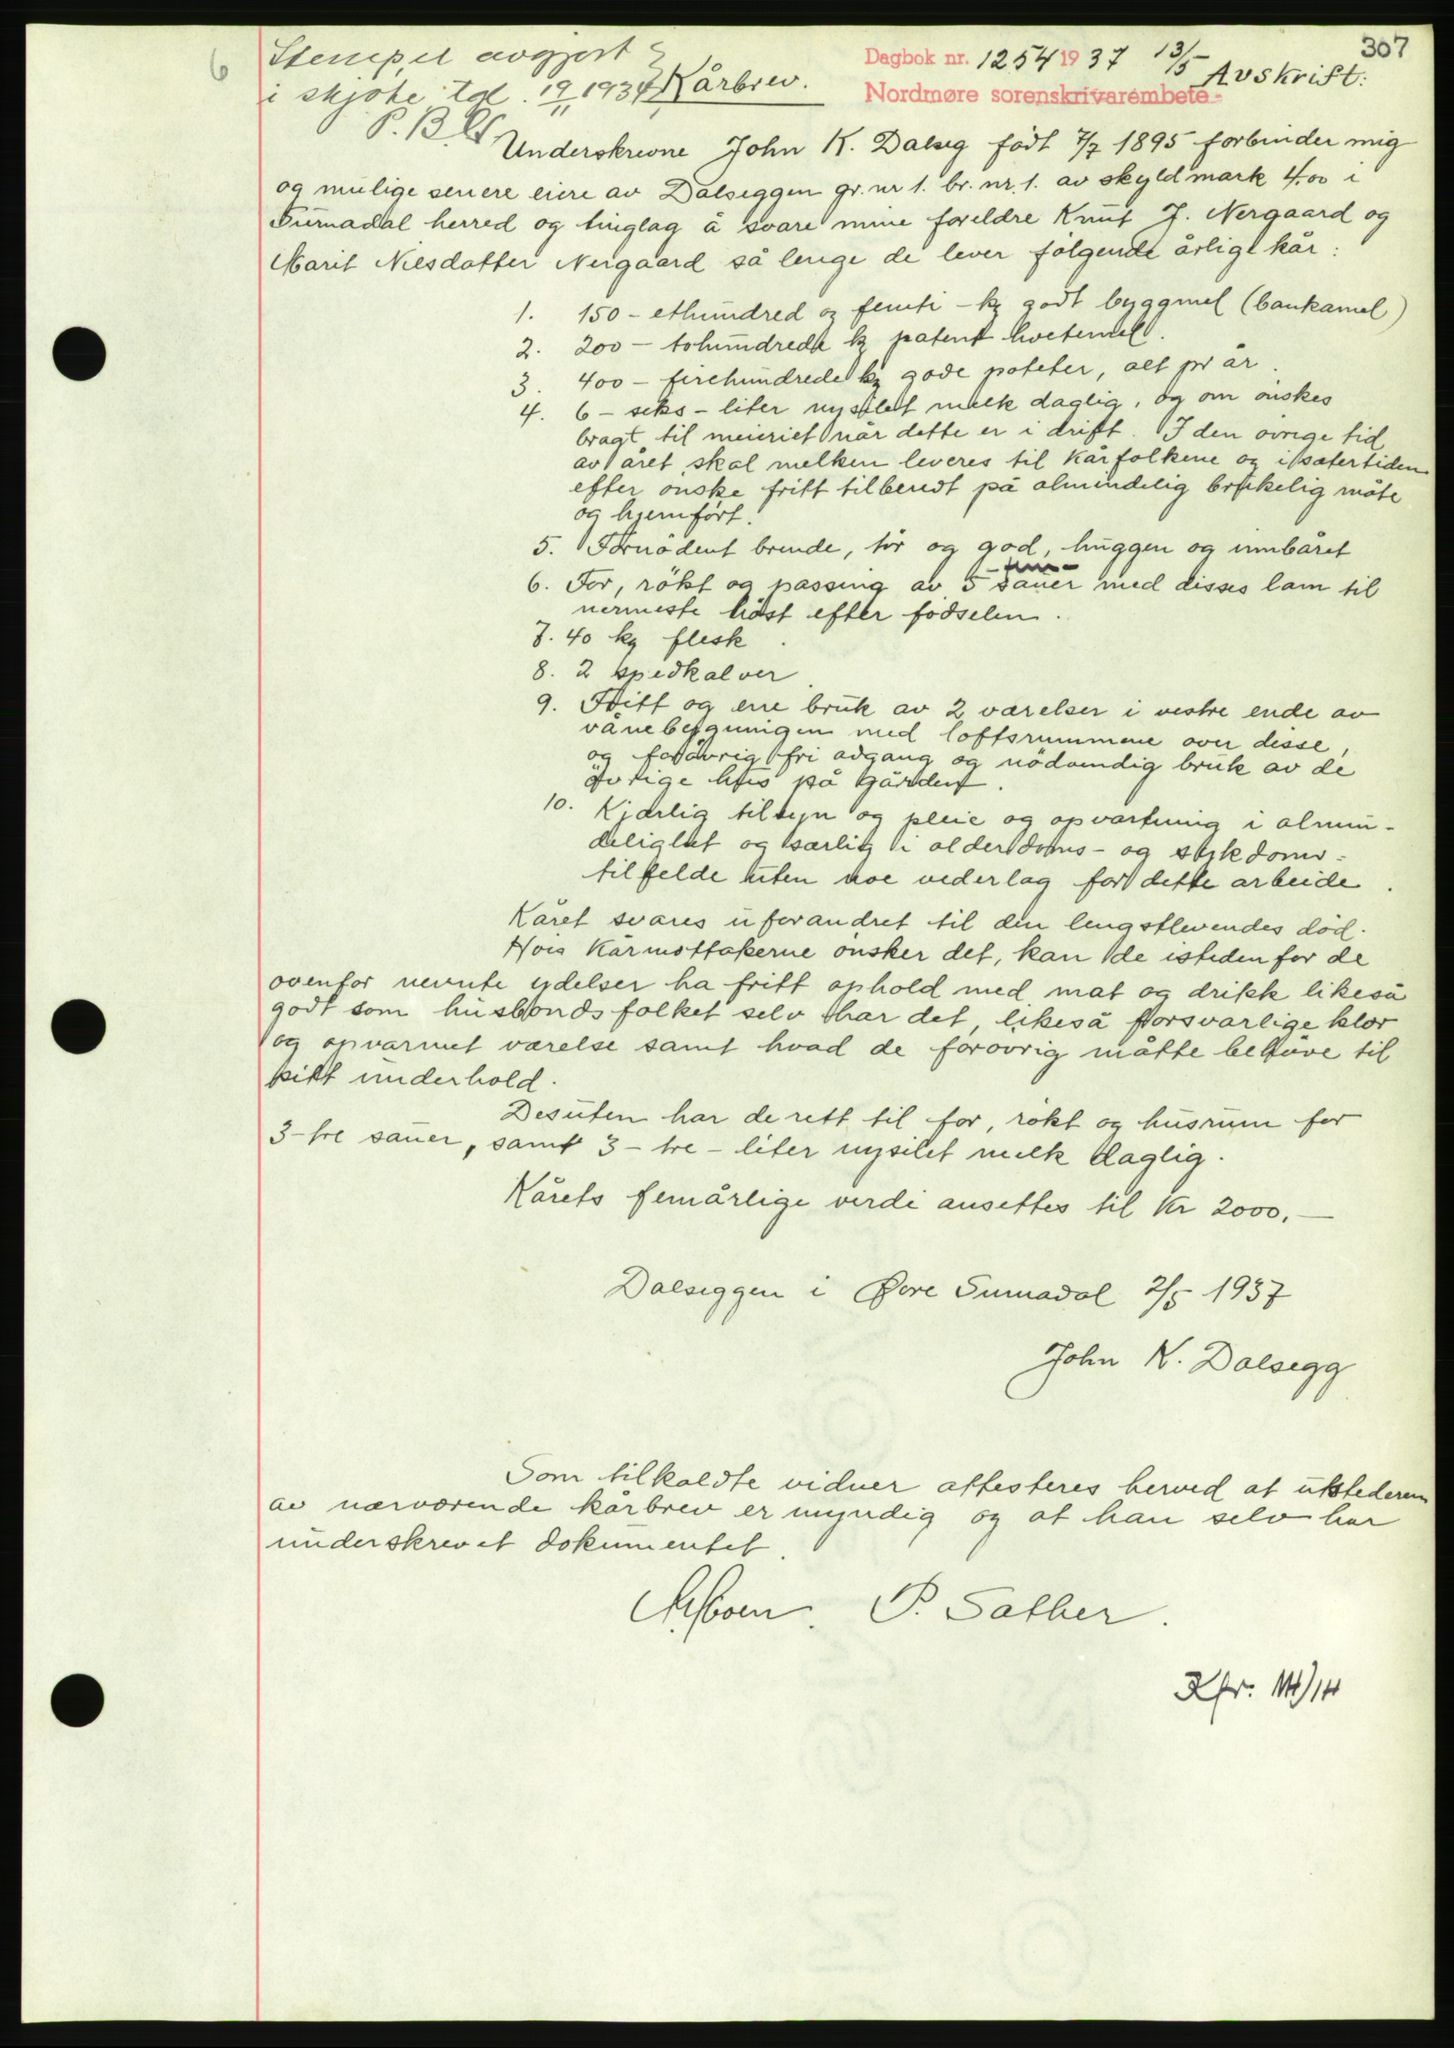 307
6
Stempel avgjort
i skjöte tgl. 19/11 1934
P. B.
Kårbrev.
Dagbok nr. 1254 1937 13/5
Nordmøre sorenskrivarembete
Avskrift:
Underskrevne John K. Dalseg födt 7/7 1895 forbinder mig
og mulige senere eiere av Dalseggen gr. nr 1. br. nr. 1. av skyldmark 4.00 i
Surnadal herred og tinglag å svare mine foreldre Knut J. Nergaard og
Marit Nilsdatter Nergaard så lenge de lever følgende årligt kår:
1. 150 - ethundred og femti - kg godt byggmel (bankamel)
2. 200 - tohundrede kg patent hvetemel.
3. 400 - firehundrede kg gode poteter, alt pr år.
4. 6 - seks - liter nysilet melk daglig, og om önskes
bragt til meieriet når dette er i drift. I den övrige tid
av året skal melken leveres til kårfolkene og i sætertiden
efter önske fritt tilberedt på almindelig brukelig måte
og hjemfört.
5. Fornödent brende, tör og god, huggen og innbåret
6. For, rökt og passing av 5 - fem - sauer med disses lam til
nermeste höst efter födselen.
7. 40 kg flesk.
8. 2 spedkalver
9. Fritt og ene bruk av 2 værelser i vestre ende av
vånebygningen med loftsrummene over disse,
og forövrig fri adgang og nödvendig bruk av de
övrige hus på gården.
10. Kjærlig tilsyn og pleie og opvartning i almin-
delighet og særlig i alderdoms- og sykdoms-
tilfelde uten noe vederlag for dette arbeide.
Kåret svares uforandret til den lengstlevendes död.
Hvis Kårmottakerne önsker det, kan de istedenfor de
ovenfor nevnte ydelser ha fritt ophold med mat og drikk likeså
godt som husbondsfolket selv har det, likeså forsvarlige klær
og opvarmet værelse samt hvad de forövrig måtte behöve til
sitt underhold.
Desuten har de rett til for, rökt og husrum for
3 - tre sauer, samt 3 - tre - liter nysilet melk daglig.
Kårets femårlige verdi ansettes til Kr 2000,—
Dalseggen i Øvre Surnadal 2/5 1937
John K. Dalsegg
Som tilkaldte vidner attesteres herved at utstederen
av nærværende kårbrev er myndig og at han selv har
underskrevet dokumentet.
P. Sæther.
Kfr. 14/14